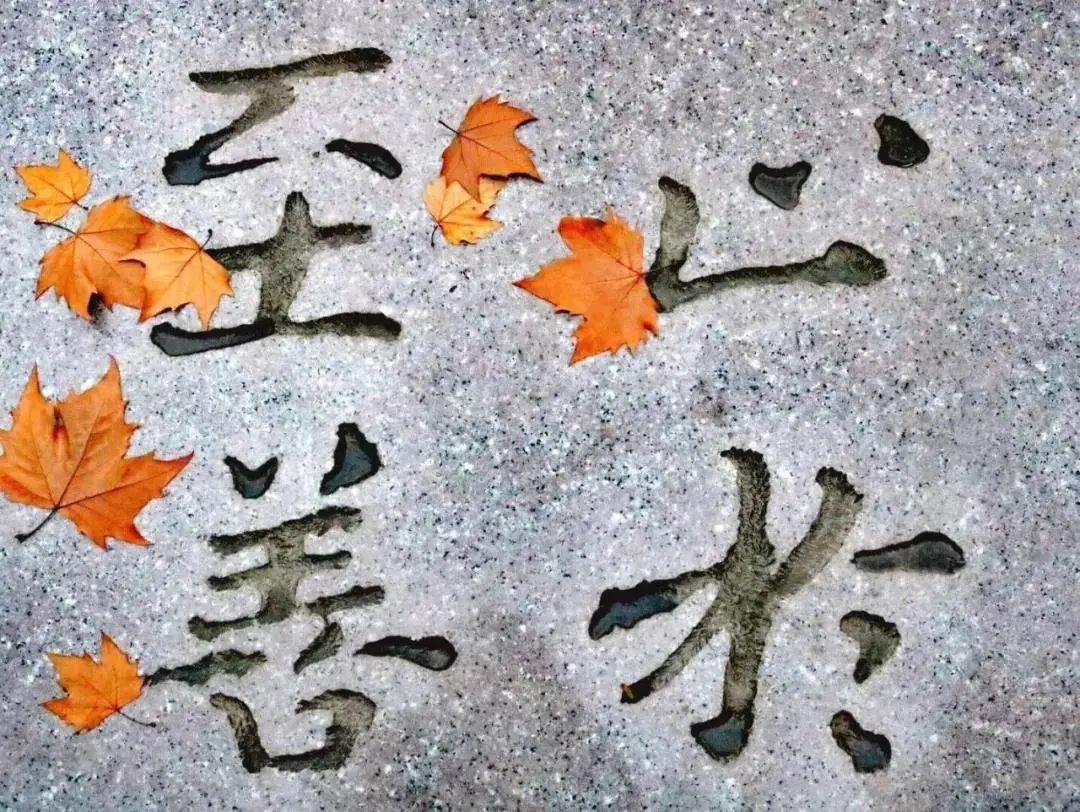 止於
至善